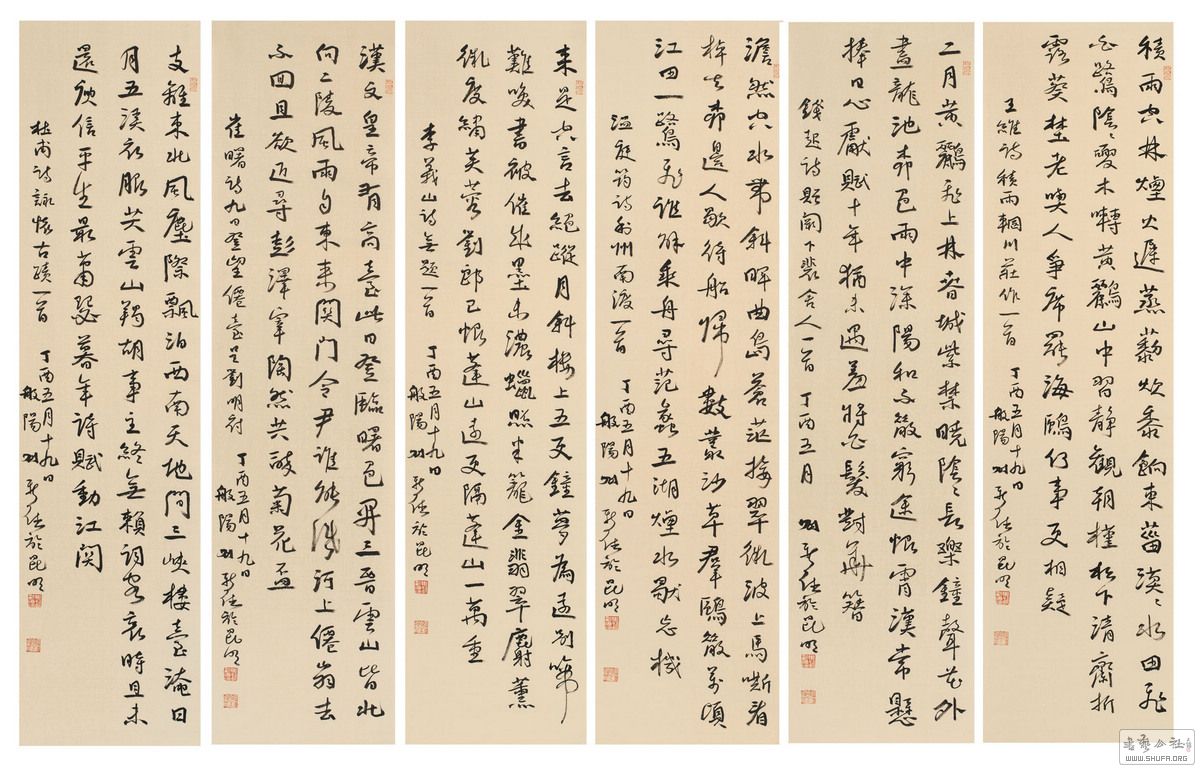 積雨空林煙火遲蒸藜炊黍餉東菑漠〻水田飛
白鷺陰〻夏木囀黃鸝山中習靜觀朝槿松下清齋折
露葵埜老與人爭席罷海鷗何事更相疑
王維詩積雨輞川莊作一首 丁酉五月十九日
般陽 於昆明
二月黃鸝飛上林春城紫禁曉陰〻長樂鐘聲花外
盡龍池柳色雨中深陽和不散窮途恨霄漢常懸
捧日心獻賦十年猶未遇羞將白髮對華簪
錢起詩贈闕下裴舍人一首 丁酉五月 於昆明
澹然空水帶斜暉曲島蒼茫接翠微波上馬嘶看
棹去柳邊人歇待船歸數叢沙草群鷗散萬頃
江田一鷺飛誰解乘舟尋范蠡五湖煙水獨忘機
溫庭筠詩利州南渡一首 丁酉五月十九日
般陽 於昆明
來是空言去絕蹤月斜樓上五更鐘夢為遠別啼
難喚書被催成墨未濃蠟照半籠金翡翠麝薰
微度繡芙蓉劉郎已恨蓬山遠更隔蓬山一萬重
李義山詩無題一首 丁酉五月十九日
般陽 於昆明
漢文皇帝有高臺此日登臨曙色開三晉雲山皆北
向二陵風雨自東來關门令尹誰能識河上僊翁去
不回且欲近尋彭澤宰陶然共醉菊花盃
崔曙詩九日登望僊臺呈劉明府 丁酉五月十九日
般陽 於昆明
支離東北風塵際飄泊西南天地間三峽樓臺淹日
月五溪衣服共雲山羯胡事主終無賴詞客哀時且未
還庾信平生最蕭瑟暮年詩賦動江関
杜甫詩詠懷古蹟一首 丁酉五月十九日
般陽 於昆明
WWW.SHUFA.ORG